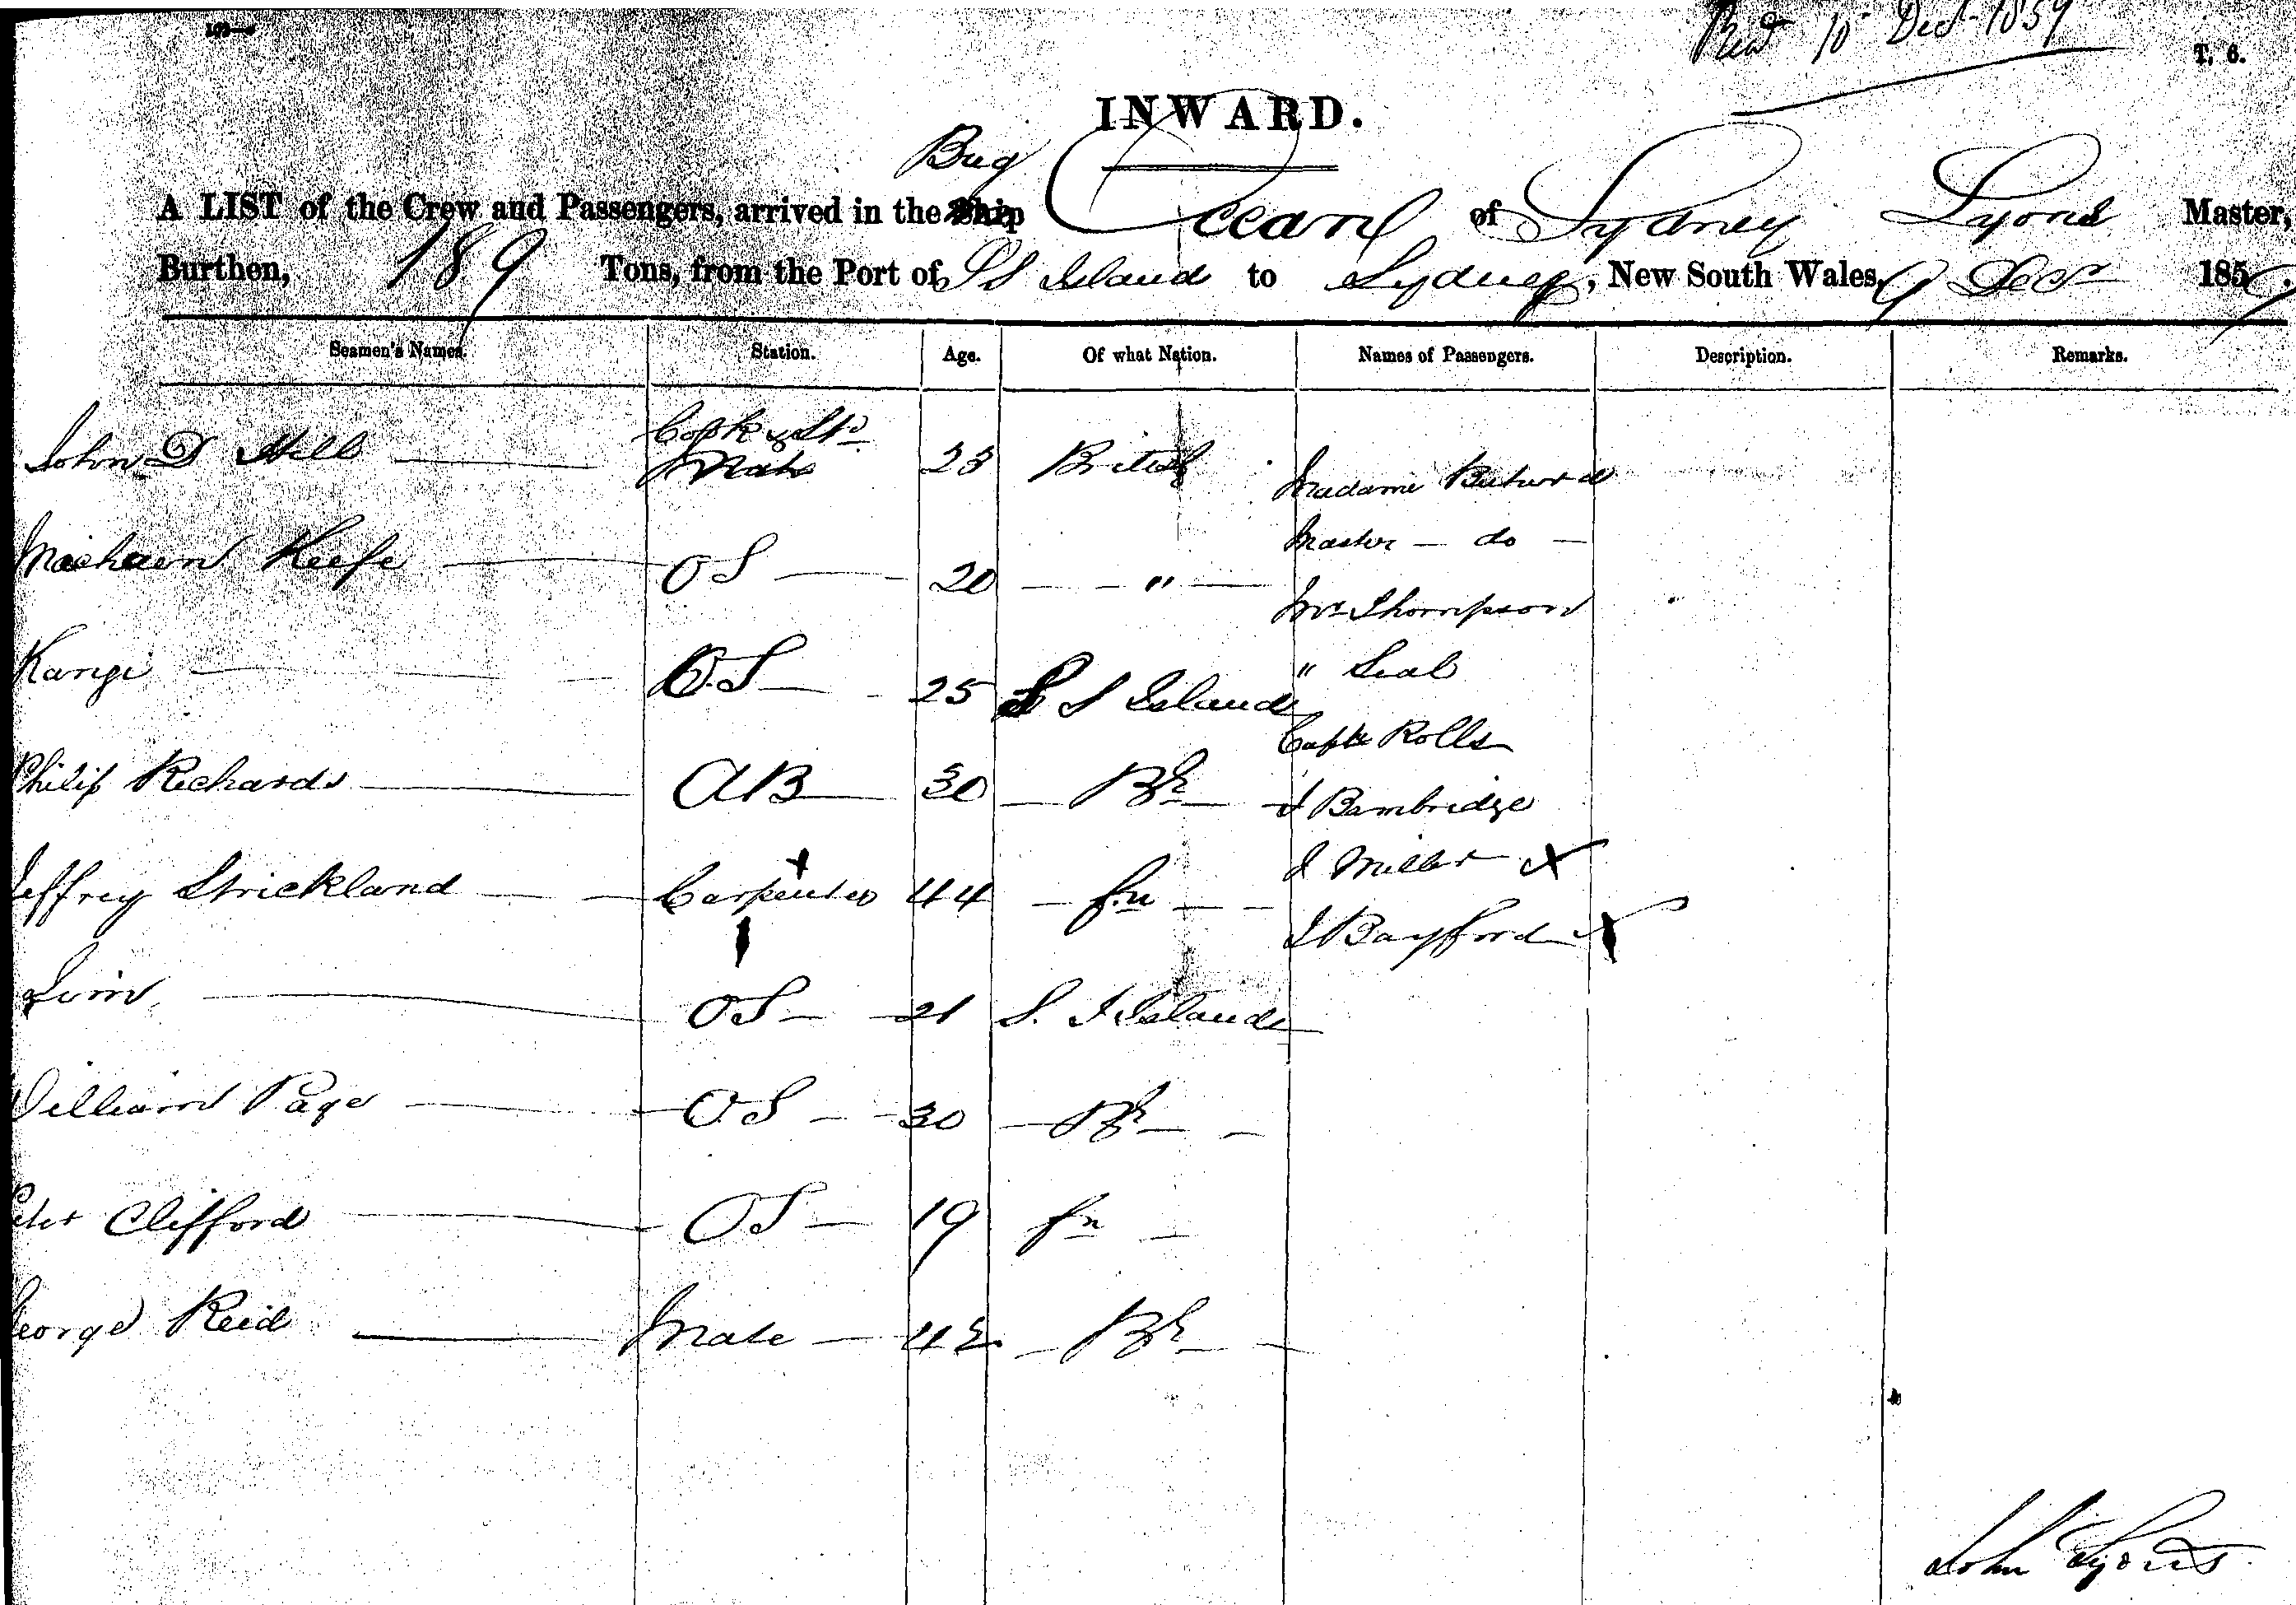 Recd 10 Decr 1859
T. 6.
INWARD.
Brig
A LIST of the Crew and Passengers, arrived in the Ship Ocean of Sydney Lyons Master,
Burthen, 189 Tons, from the Port of SS Island to Sydney, New South Wales, 9 Decr 1859.
Seamen's Names. Station. Age. Of what Nation. Names of Passengers. Description. Remarks.
John D Hill Cook & Std Mate 23 British Madame
Master do
Keefe OS 20 "
Mr Thompson
Kangi O.S 25 S S Islands " Seal
Captn Rolls
Philip Richards AB 30 Br J Bambridge
J Miller X
Jeffrey Strickland Carpenter 44 fn
J Bayfford X
Jim OS 21 S. S Islands
William Page OS 30 Br
Peter Clifford OS 19 fn
George Reid Mate 42 Br
John Lyons